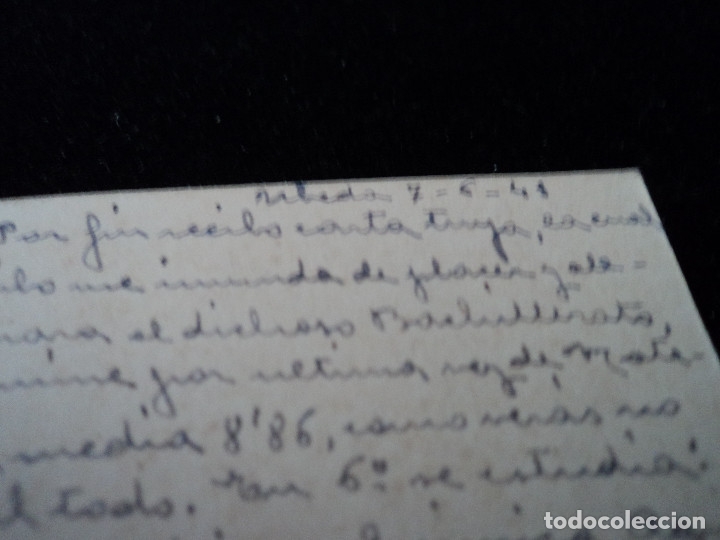 Ubeda 7=6=41
Por fin recibo carta tuya, la cual
me inunda de placer y ale=
para el dichoso Bachillerato,
por ultima vez de Mate-
media 8'86, como verás no
todo. En 6º se estudia:
todocoleccion
todocoleccion.net